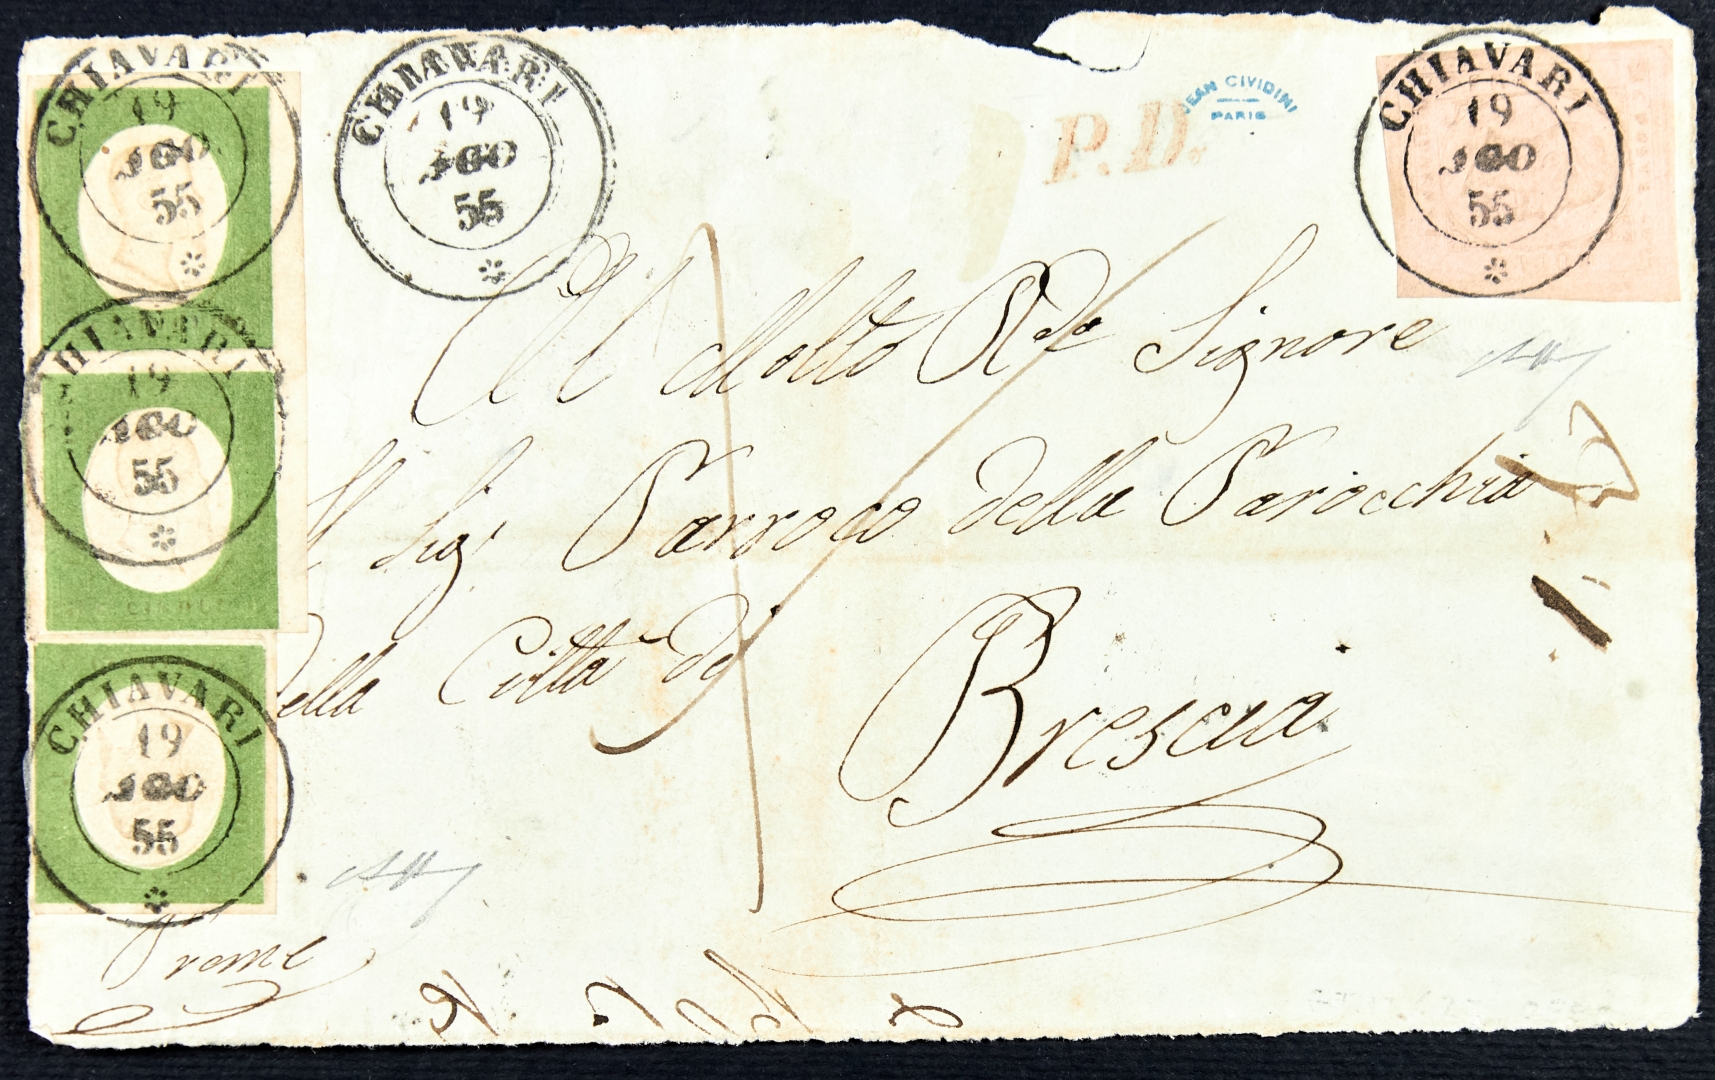 CHIAVARI
19
AGO
55
CHIAVARI
19
AGO
55
P.D.
JEAN CIVIDINI
PARIS
CHIAVARI
19
AGO
55
CHIAVARI
19
AGO
55
CHIAVARI
19
AGO
55
Al Molto Rdo Signore
Il Sigr Parroco della Parocchia
Della Città di
Brescia
Preme